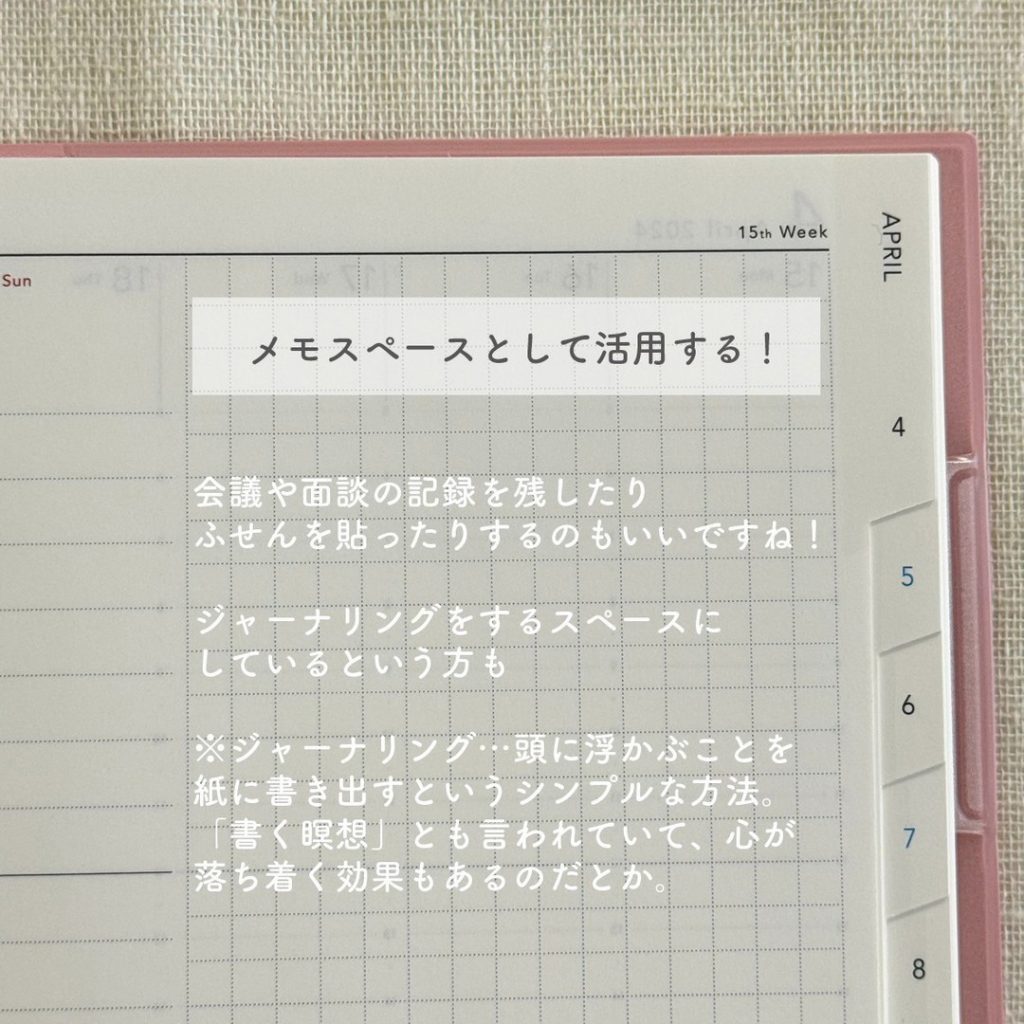 15th Week
APRIL
Sun
メモスペースとして活用する！
会議や面談の記録を残したり
ふせんを貼ったりするのもいいですね！
ジャーナリングをするスペースに
しているという方も
※ジャーナリング…頭に浮かぶことを
紙に書き出すというシンプルな方法。
「書く瞑想」とも言われていて、心が
落ち着く効果もあるのだとか。
4
5
6
7
8